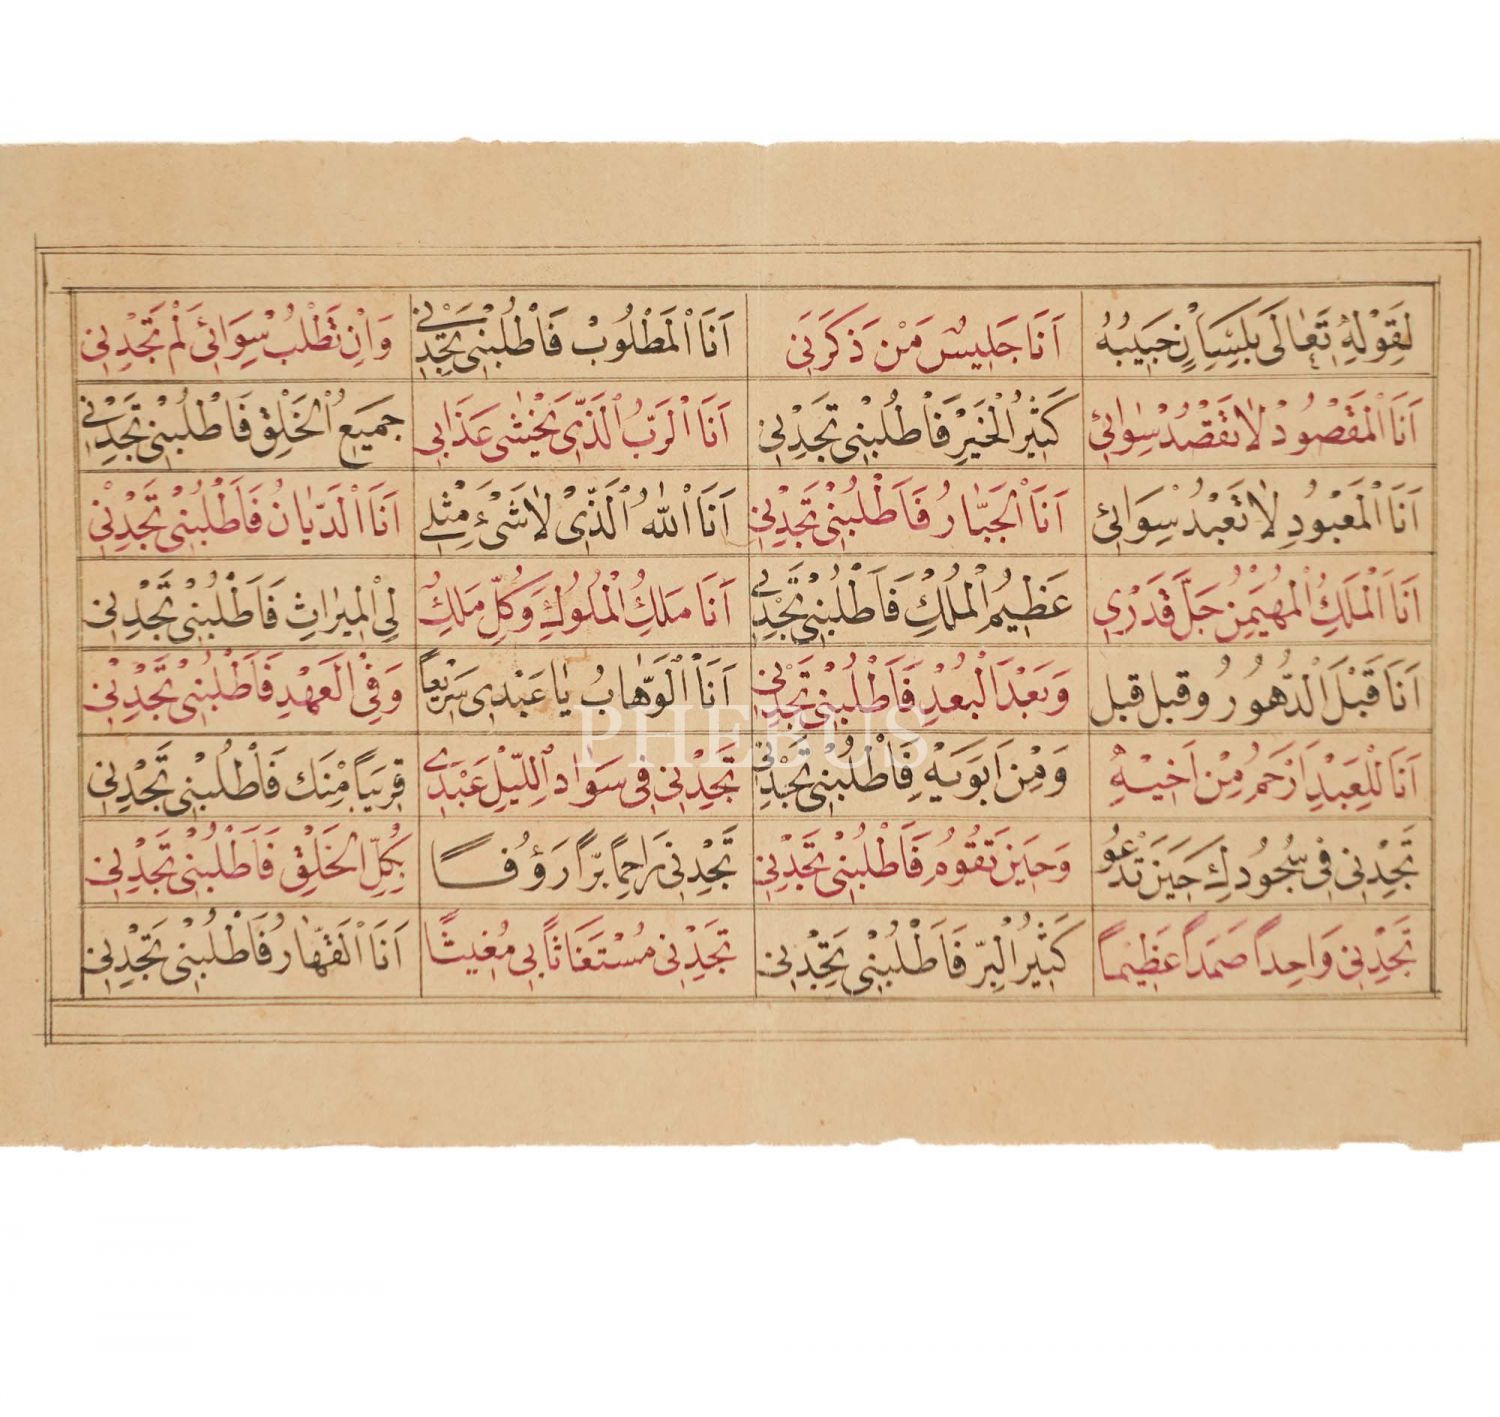 لِقَوْلِهِ تَعَالَى بِلِسَانِ حَبِيبِهِ اَنَا جَلِيسُ مَنْ ذَكَرَنِي اَنَا الْمَطْلُوبْ فَاطْلُبْنِي تَجِدْنِي وَاِنْ تَطْلُبْ سِوَائِي لَمْ تَجِدْنِي
اَنَا الْمَقْصُودْ لَا تَقْصُدْ سِوَائِي كَثِيرُ الْخَيْرِ فَاطْلُبْنِي تَجِدْنِي اَنَا الرَّبُّ الَّذِي يُخْشٰى عَذَابِي جَمِيعُ الْخَلْقِ فَاطْلُبْنِي تَجِدْنِي
اَنَا الْمَعْبُودِ لَا تَعْبُدْ سِوَائِي اَنَا الْجَبَّارُ فَاطْلُبْنِي تَجِدْنِي اَنَا اللهُ الَّذِي لَا شَيْءَ مِثْلِي اَنَا الدَّيَّانُ فَاطْلُبْنِي تَجِدْنِي
اَنَا الْمَلِكُ الْمُهَيْمِنُ جَلَّ قَدْرِي عَظِيمُ الْمُلْكِ فَاطْلُبْنِي تَجِدْنِي اَنَا مَلِكُ الْمُلُوكِ وَكُلِّ مَلِكُ لِي الْمِيرَاثِ فَاطْلُبْنِي تَجِدْنِي
اَنَا قَبْلَ الدُّهُورُ وقبل قبل وَبَعْدَ الْبُعْدِ فَاطْلُبْنِي تَجِدْنِي اَنَا الْوَهَّابُ يَا عَبْدِي سَرِيعاً وَفِي الْعَهْدِ فَاطْلُبْنِي تَجِدْنِي
اَنَا لِلْعَبْدِ اَرْحَمُ مِنْ اَخِيهِ وَمِنْ اَبَوَيْهِ فَاطْلُبْنِي تَجِدْنِي تَجِدْنِي فِي سَوَادِ اللَّيْلِ عَبْدِي قَرِيباً مِنْكَ فَاطْلُبْنِي تَجِدْنِي
تَجِدْنِي فِي سُجُودِكَ حِينَ تَدْعُو وَحِينَ تَقُومُ فَاطْلُبْنِي تَجِدْنِي تَجِدْنِي رَاحِماً بَرّاً رَؤُفاً بِكُلِّ الْخَلْقِ فَاطْلُبْنِي تَجِدْنِي
تَجِدْنِي وَاحِداً صَمَداً عَظِيماً كَثِيرُ الْبِرِّ فَاطْلُبْنِي تَجِدْنِي تَجِدْنِي مُسْتَغَاثاً بِي مُغِيثاً اَنَا الْقَهَّارُ فَاطْلُبْنِي تَجِدْنِي
PHEBUS